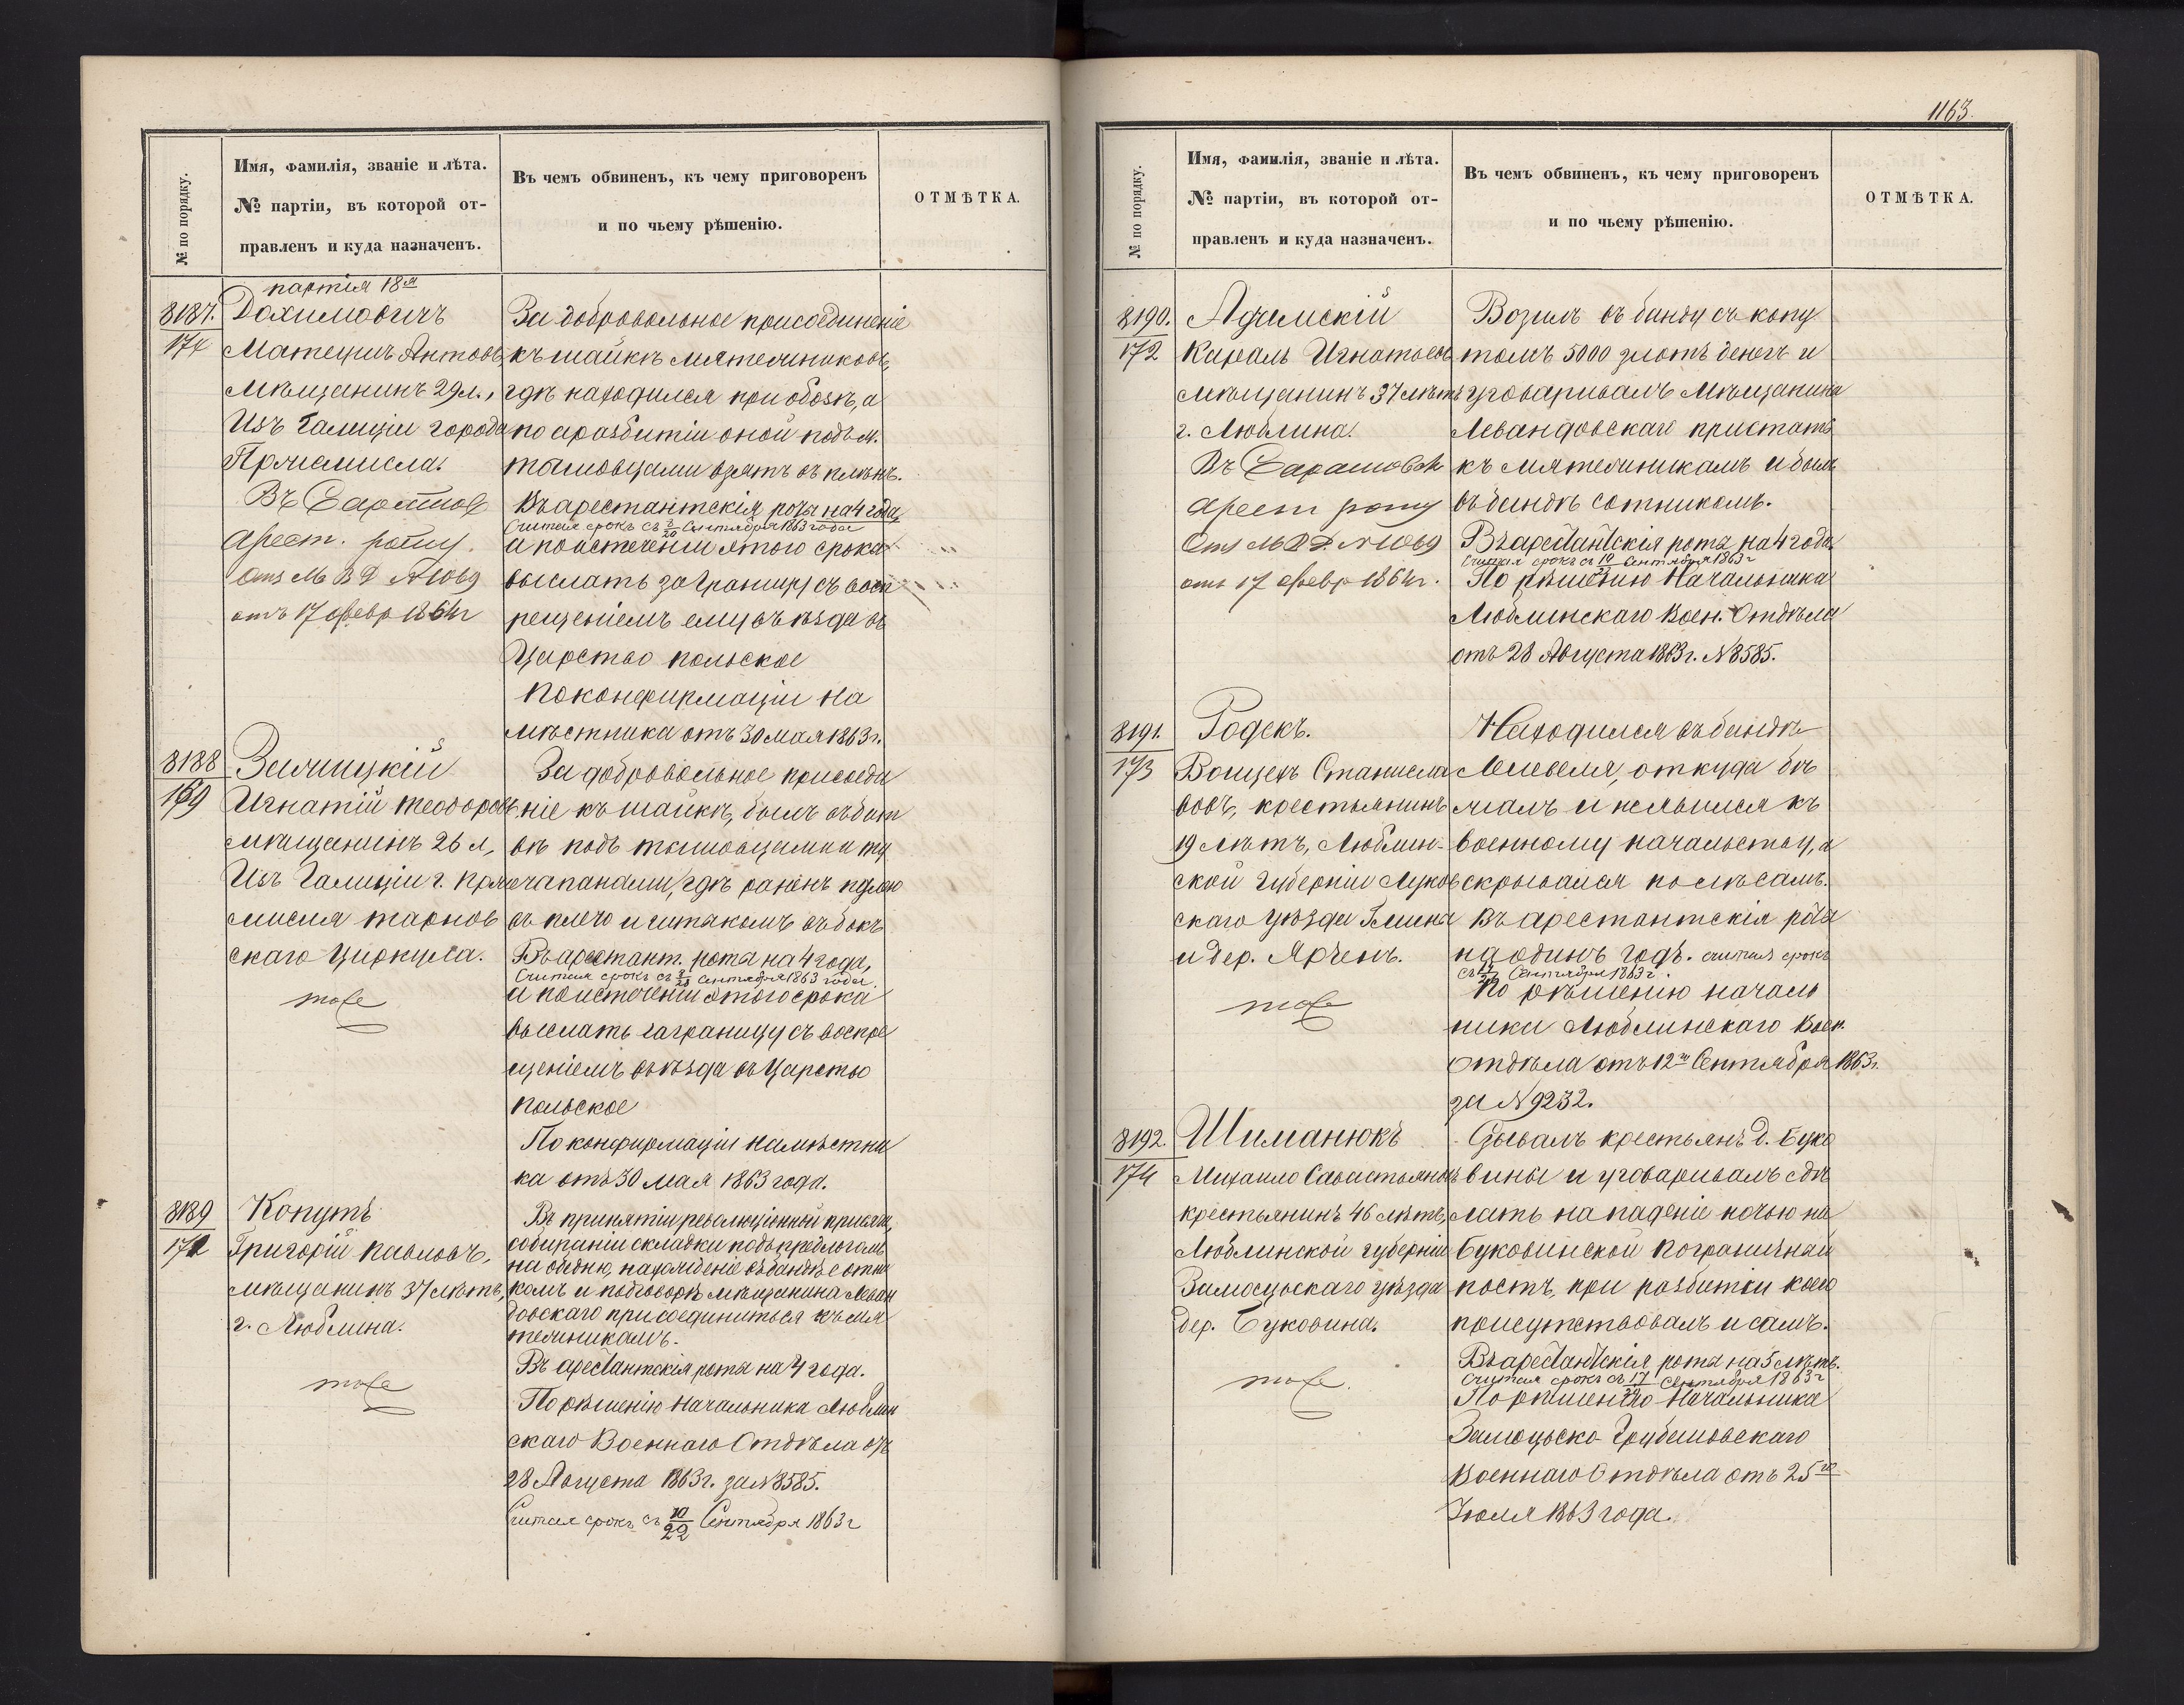 № по порядку.
Имя, фамилія, званіе и лѣта.
№ партіи, въ которой от-
правленъ и куда назначенъ.
Въ чемъ обвиненъ, къ чему приговоренъ
и по чьему рѣшенію.
ОТМѢТКА.
партія 18я
8187.
174
Дахимовичъ
Матеушъ Антоновъ,
мѣщанинъ 29 л.,
Изъ Галиціи города
Пржемисла.
Въ Саратов
арест. роту.
отз М В Д №1069
отъ 17 февр 1864 г
За добровольное присоединеніе
къ шайкѣ мятежниковъ,
гдѣ находился при обозѣ, а
по разбитіи оной подъ м.
взятъ въ плѣнъ.
Въ арестантскія роты на 4 года,
Считая срокъ съ 8/20 Сентября 1863 года
и по истеченіи этого срока
выслать заграницу съ воспр
рещеніемъ ему въѣзда въ
Царство польское
По конфирмаціи на
мѣстника отъ 30 мая 1863 г.
8188
169
Зелинцкій
Игнатій Теодоровъ
мѣщанинъ 26 л,
Изъ Галиціи г. Прже
мисля тарнов
скаго Циркула.
тоже
За добровольное присоеди
неніе къ шайкѣ, былъ въ бит
вѣ подъ
гдѣ раненъ пулею
въ плечо и штыкомъ въ бокъ
Въ арестант. роты на 4 года,
Считая срокъ съ 8/20 Сентября 1863 года.
и по истеченіи этого срока
выслать заграницу съ воспре
щеніемъ въѣзда въ Царство
Польское
По конфирмаціи намѣстни
ка отъ 30 мая 1863 года.
8189
171
Копутъ
Григорій Павловъ,
мѣщанинъ 37 лѣтъ,
г. Люблина.
тоже
Въ принятіи революціонной присяги,
собираніи складки подъ предлогомъ
нахожденіе въ бандѣ сотни
комъ и подговорѣ мѣщанина Леван
довскаго присоединиться къ мя
тежникамъ.
Въ арестантскія роты на 4 года.
По рѣшенію Начальника Люблин
скаго Военнаго Отдѣла отъ
28 Августа 1863 г. за №8585.
Считая срокъ съ 10/22 Сентября 1863 г
1163.
№ по порядку.
Имя, фамилія, званіе и лѣта.
№ партіи, въ которой от-
правленъ и куда назначенъ.
Въ чемъ обвиненъ, къ чему приговоренъ
и по чьему рѣшенію.
ОТМѢТКА.
8190.
172
Адамскій
Кароль Игнатьевъ
мѣщанинъ 37 лѣтъ
г. Люблина.
Въ Саратовск
арест роту
отз М В Д №1069
отъ 17 февр 1864 г.
Возилъ въ банду съ Копу
томъ 5000 злотъ денегъ и
уговаривалъ мѣщанина
Левандовскаго пристать
къ мятежникамъ и былъ
въ бандѣ сотникомъ.
Въ арестантскія роты на 4 года.
Считая срокъ съ 10/22 Сентября 1863 г
По рѣшенію Начальника
Люблинскаго Воен. Отдѣла
отъ 28 Августа 1863 г. №8585.
8191.
173
Годекъ.
Войцехъ Станисла
вовъ, крестьянинъ
19 лѣтъ, Люблин-
ской губерніи Луков
скаго уѣзда Гмина
и дер. Ярчевъ.
тоже
Находился въ бандѣ
Лелевеля, откуда бѣ
жалъ и не явился къ
военному начальству, а
скрывался по лѣсамъ.
Въ арестантскія роты
на одинъ годъ. считая срокъ
Сентября 1863 г.
По рѣшенію началь
ника Люблинскаго Воен.
Отдѣла отъ 12го Сентября 1863 г.
за №9232.
8192.
174
Шиманюкъ
Михаило Савастьяновъ
крестьянинъ 46 лѣтъ,
Люблинской губерніи
Замосцьскаго уѣзда
дер. Буковина.
тоже.
Сзывалъ крестьянъ д. Буко
вины и уговаривалъ сдѣ
лать нападеніе ночью на
Буковинской пограничный
постъ, при разбитіи коего
присутствовалъ и самъ.
Въ арестантскія роты на 5 лѣтъ.
Считая срокъ съ 17/29 Сентября 1863 г
По рѣшенію Начальника
Замосцьско-Грубешовскаго
Военнаго Отдѣла отъ 25го
Іюля 1863 года.